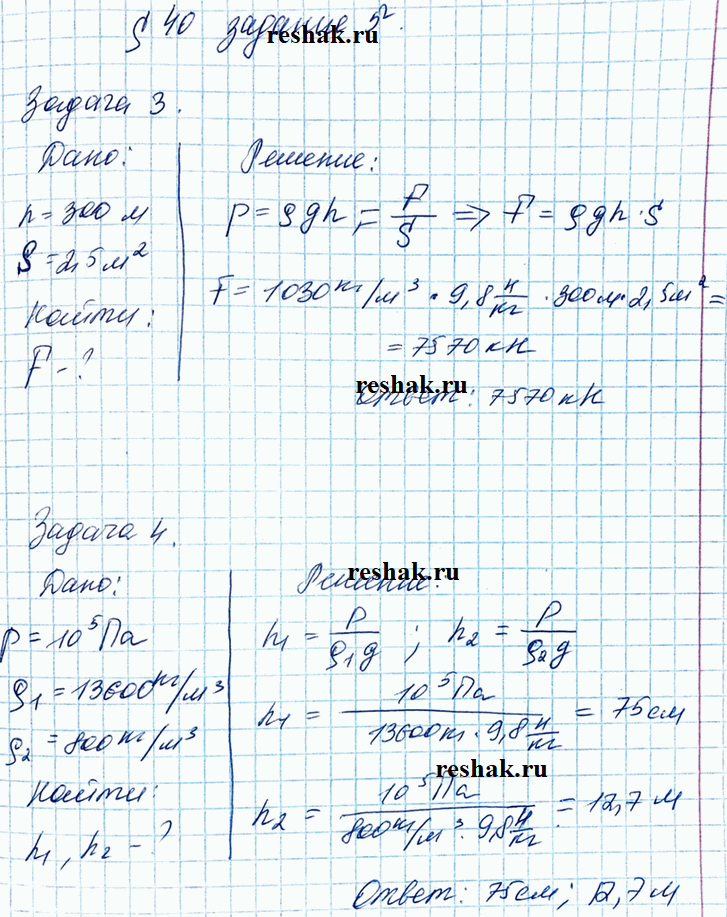 § 40 задание 5².
reshak.ru
Задача 3.
Дано:
h = 300 м
S = 2,5 м²
Найти:
F - ?
Решение:
p = ρgh; = F/S => F = ρgh·S
F = 1030 кг/м³ · 9,8 н/кг · 300 м · 2,5 м² =
= 7570 кН
reshak.ru
Ответ: 7570 кН
Задача 4.
Дано:
P = 10⁵ Па
ρ₁ = 13600 кг/м³
ρ₂ = 800 кг/м³
Найти:
h₁, h₂ - ?
reshak.ru
Решение:
h₁ = P/ρ₁g ; h₂ = P/ρ₂g
h₁ = 10⁵ Па/13600 кг · 9,8 н/кг = 75 см
reshak.ru
h₂ = 10⁵ Па/800 кг/м³ · 9,8 н/кг = 12,7 м
Ответ: 75 см; 12,7 м